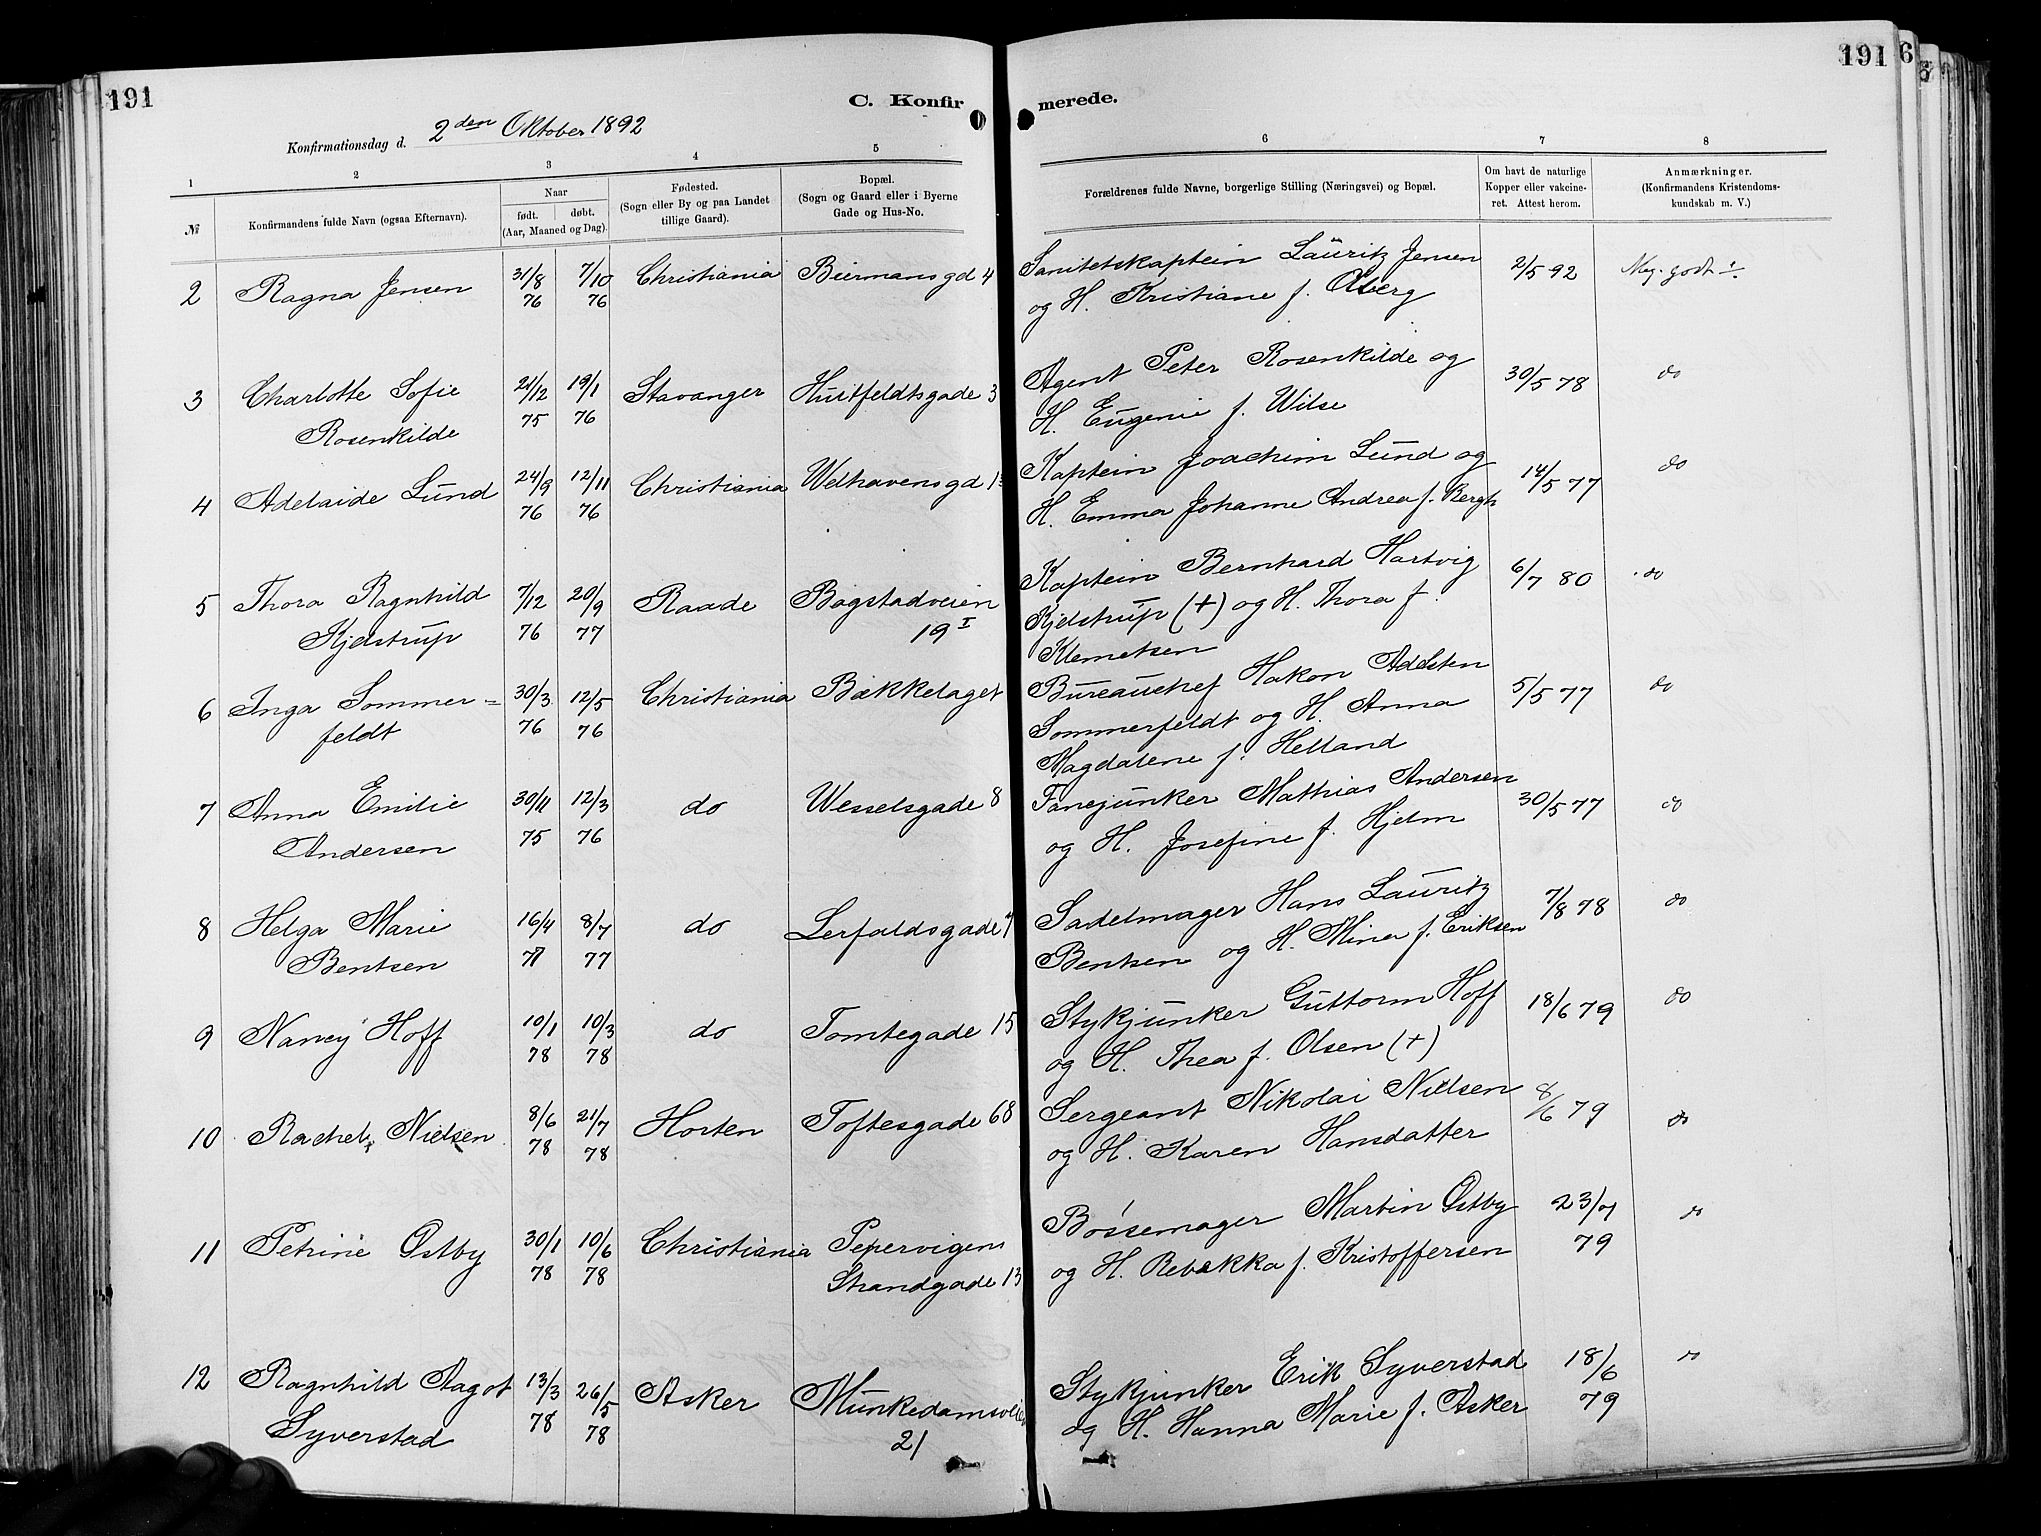 191
C. Konfir
merede.
191
6
Konfirmationsdag d. 2den Oktober 1892
1 2 3 4 5 6 7 8
№
Konfirmandens fulde Navn (ogsaa Efternavn).
Naar
født. døbt.
(Aar, Maaned og Dag).
Fødested.
(Sogn eller By og paa Landet
tillige Gaard).
Bopæl.
(Sogn og Gaard eller i Byerne
Gade og Hus-No.
Forældrenes fulde Navne, borgerlige Stilling (Næringsvei) og Bopæl.
Om havt de naturlige
Kopper eller vakcine-
ret. Attest herom.
Anmærkninger.
(Konfirmandens Kristendoms-
kundskab m. V.)
2 Ragna Jensen 31/8 76 7/10 76 Christiania Biermansgd 4 Sanitetskaptein Lauritz Jensen 2/5 92 Meg. godt
og H. Kristiane f. Åberg
3 Charlotte Sofie 21/12 75 19/1 76 Stavanger Huitfeldtsgade 3 Agent Peter Rosenkilde og 30/5 78 do
Rosenkilde H. Eugenie f. Wilse
4 Adelaide Lund 24/9 76 12/11 76 Christiania Welhavensgd Kaptein Joachim Lund og 14/5 77 do
H. Emma Johanne Andrea f. Bergh
5 Thora Ragnhild 7/12 76 20/9 77 Raade Bogstadveien Kaptein Bernhard Hartvig 6/7 80 do
Kjelstrup 19 I Kjelstrup (+) og H. Thora f.
Klemetsen
6 Inga Sommer= 30/3 76 12/5 76 Christiania Bækkelaget Bureauchef Hakon Adelsten 5/5 77 do
feldt Sommerfeldt og H. Anna
Magdalene f. Helland
7 Anna Emilie 30/11 75 12/3 76 do Wesselsgade 8 Fanejunker Mathias Andersen 30/5 77 do
Andersen og H. Josefine f. Hjelm
8 Helga Marie 16/4 77 8/7 77 do Lerfaldsgade Sadelmager Hans Lauritz 7/8 78 do
Bentsen Bentsen og H. Mina f. Eriksen
9 Nancy Hoff 10/1 78 10/3 78 do Tomtegade 15 Stykjunker Guttorm Hoff 18/6 79 do
og H. Thea f. Olsen (+)
10 Rachel Nielsen 8/6 78 21/7 78 Horten Toftesgade 68 Sergeant Nikolai Nielsen 8/6 79 do
og H. Karen Hansdatter
11 Petrine Østby 30/1 78 10/6 78 Christiania Pepervigens Bøssemager Martin Østby 23/7 79 do
Strandgade 13 og H. Rebekka f. Kristoffersen
12 Ragnhild Aagot 13/3 78 26/5 78 Asker Munkedamsveien Stykjunker Erik Syverstad 18/6 79 do
Syverstad 21 og H. Hanna Marie f. Asker